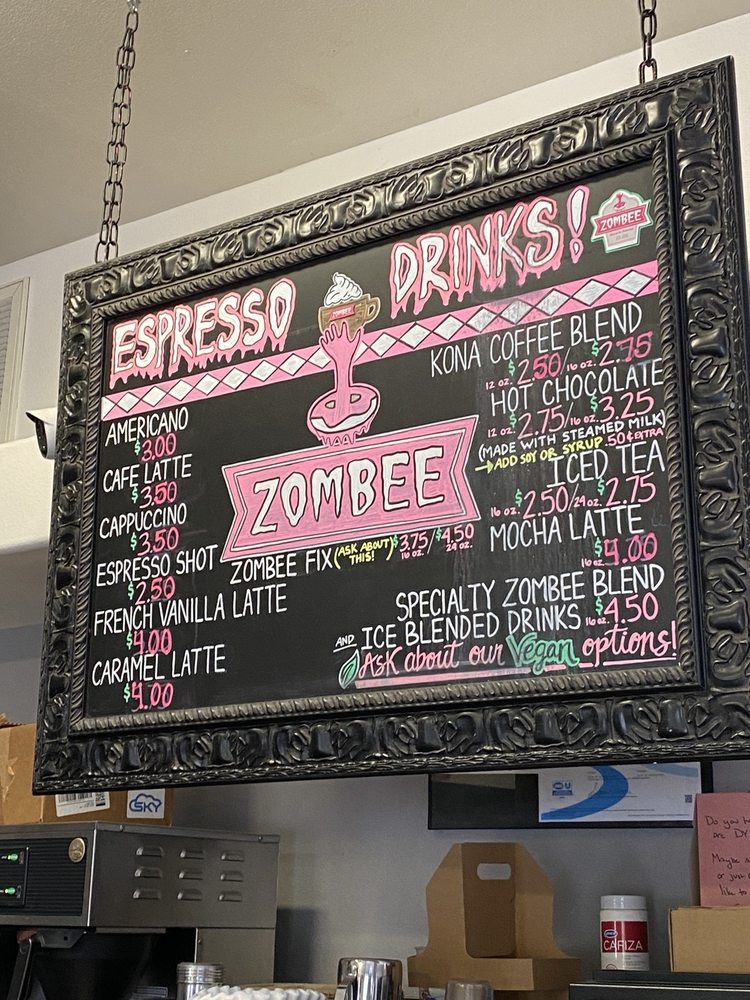 ESPRESSO DRINKS!
ZOMBEE
ZOMBEE
AMERICANO
$3.00
CAFE LATTE
$3.50
CAPPUCCINO
$3.50
ESPRESSO SHOT
$2.50
FRENCH VANILLA LATTE
$4.00
CARAMEL LATTE
$4.00
ZOMBEE
ZOMBEE FIX (ASK ABOUT THIS!) $3.75/$4.50
16 oz. 24 oz.
KONA COFFEE BLEND
12 oz. $2.50/16 oz. $2.75
HOT CHOCOLATE
12 oz. $2.75/16 oz. $3.25
(MADE WITH STEAMED MILK)
→ADD SOY OR SYRUP .50¢ EXTRA
ICED TEA
16 oz. $2.50/24 oz. $2.75
MOCHA LATTE
16 oz. $4.00
SPECIALTY ZOMBEE BLEND
AND ICE BLENDED DRINKS 16 oz. $4.50
Ask about our Vegan options!
SKY
CAFIZA
Do you
are DY
Maybe
or just
like to